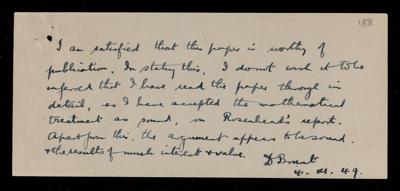 188
I am satisfied that this paper is worthy of
publication. In stating this, I do not wish it to be
inferred that I have read the paper through in
detail, as I have accepted the mathematical
treatment as sound, on Rosenhead's report.
Apart from this, the argument appears to be sound
& the results of much interest & value.
D Brunt
49.